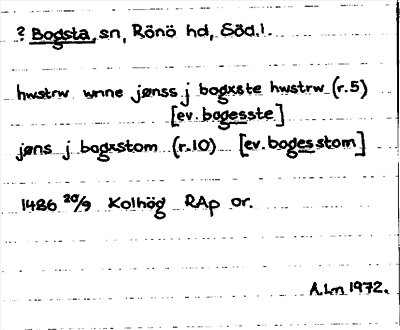 ? Bogsta, sn, Rönö hd, Söd.l.
hwstrw wnne jønss j bogxste hwstrw (r.5)
[ev. bogesste]
jøns j bogxstom (r.10) [ev. bogesstom]
1486 20/9 Kolhög RAp or.
A.Ln 1972.